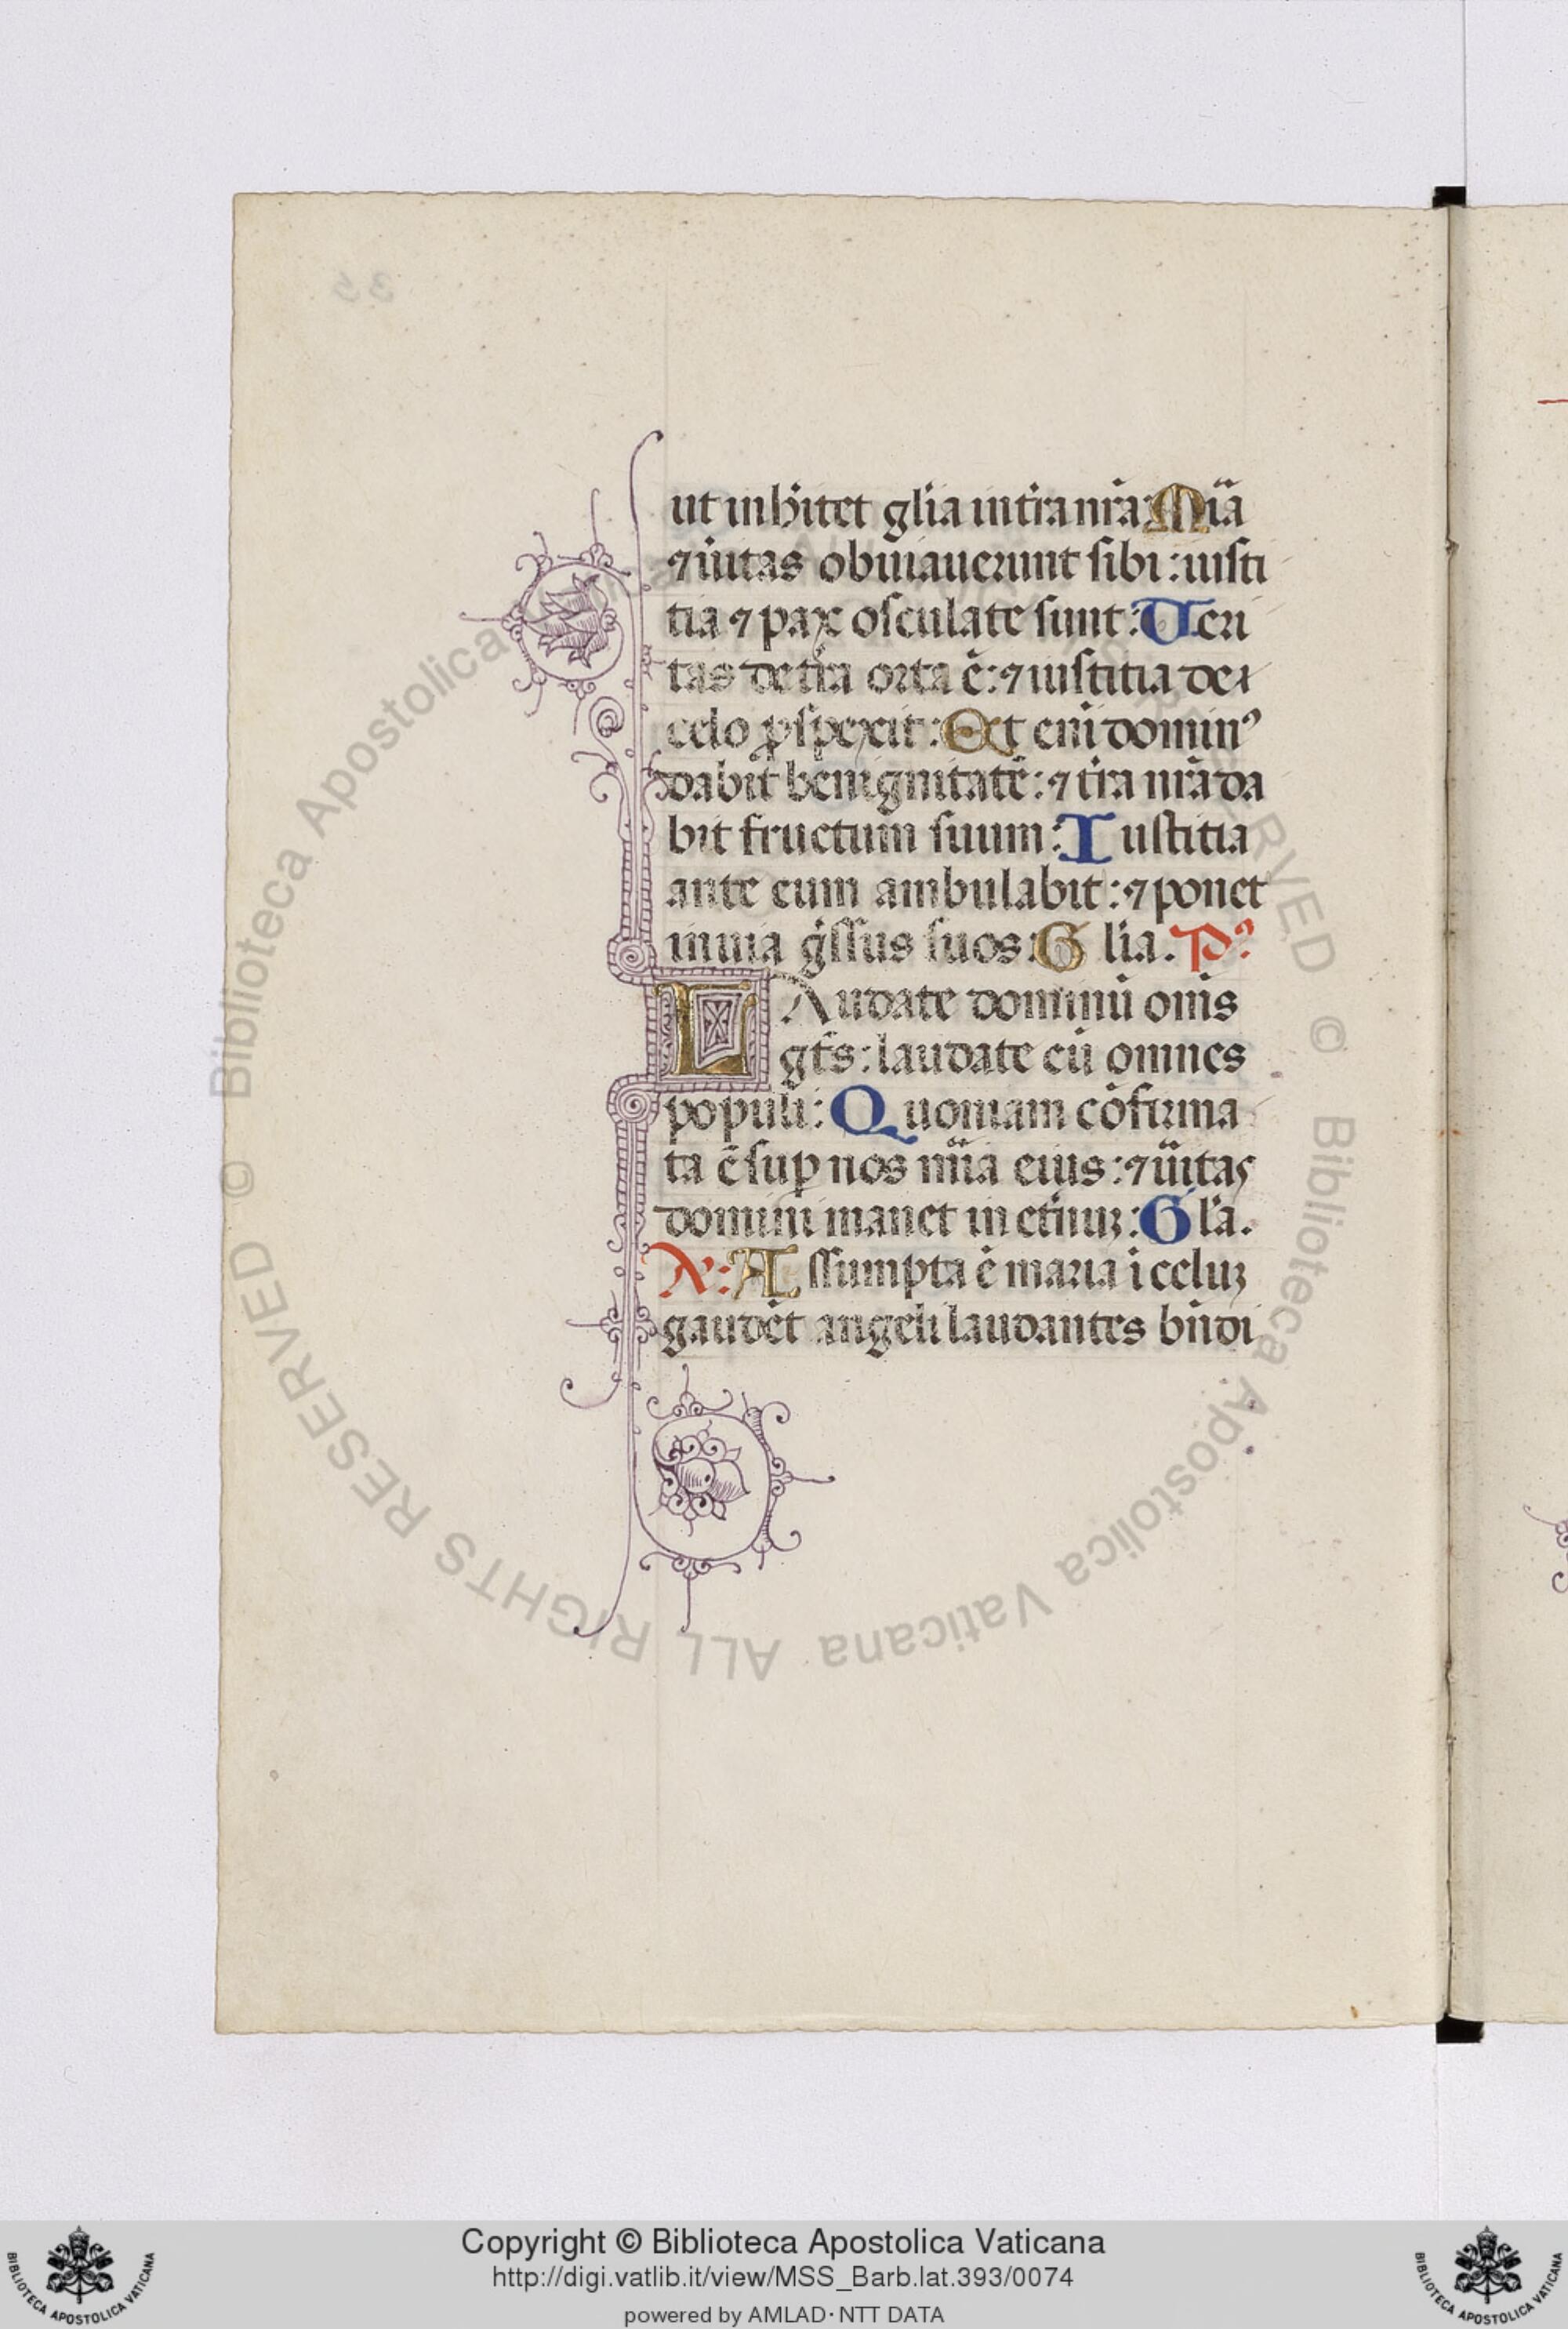 35
ut inhitet glia in tra nra: Mia
⁊ uitas obuiauerunt sibi: iusti
tia ⁊ pax osculate sunt: Ueri
tas de tra orta ē: ⁊ iustitia de
celo ꝓspexit: Et eni dominꝰ
dabit benignitatē: ⁊ tra nra da
bit fructum suum: Iustitia
ante eum ambulabit: ⁊ ponet
in uia gssus suos: Glia. Pꝰ
LAudate dominū oms
gts: laudate eū omnes
populi: Quoniam cōfirma
ta ē sup nos mia eius: ⁊ uitas
domini manet in etnuꝫ: Gla.
A: Assumpta ē maria ī celuꝫ
gaudēt angeli laudantes bndi
© Biblioteca Apostolica Vaticana ALL RIGHTS RESERVED © Biblioteca Apostolica Vaticana ALL RIGHTS RESERVED
Copyright © Biblioteca Apostolica Vaticana
http://digi.vatlib.it/view/MSS_Barb.lat.393/0074
powered by AMLAD·NTT DATA
BIBLIOTECA APOSTOLICA VATICANA
BIBLIOTECA APOSTOLICA VATICANA